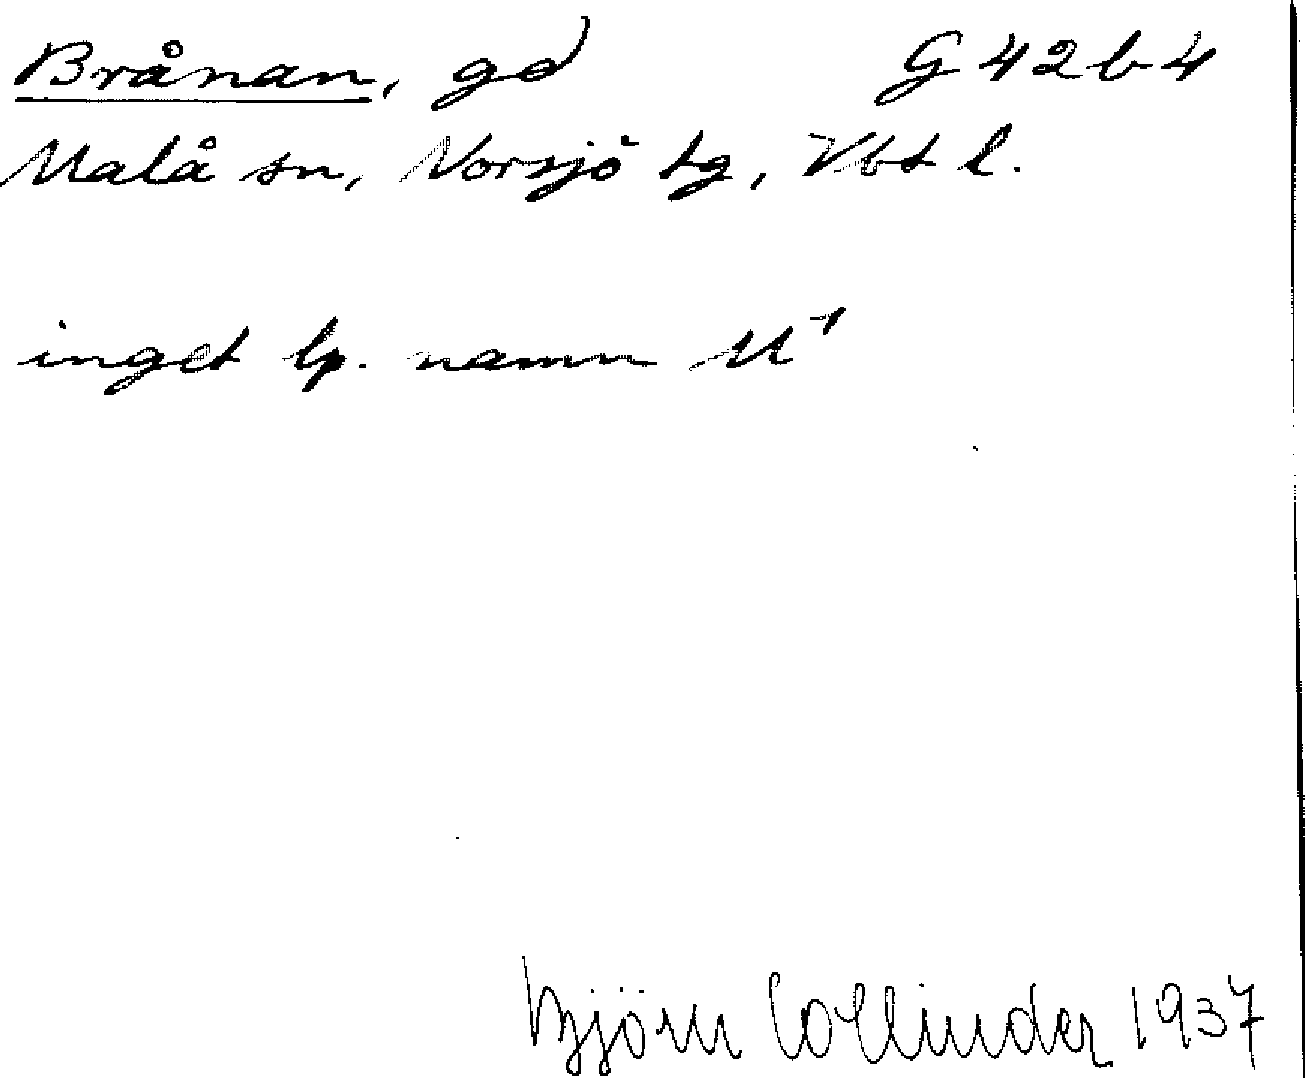 Brånan, gd G 42 b 4
Malå sn, Norsjö tg, Vbt l.
inget lp. namn M¹
Björn Collinder 1937